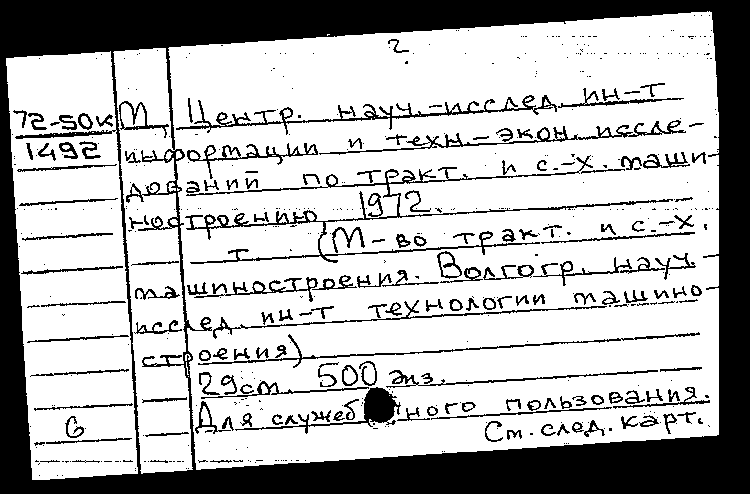 2
72-50к М, Центр. науч.-исслед. ин-т
1492 информации и техн.-экон. иссле-
дований по тракт. и с.-х. маши-
ностроению, 1972.
т (М-во тракт. и с.-х.
машиностроения. Волгогр. науч.-
исслед. ин-т технологии машино-
строения).
29см. 500 экз.
6 Для служебного пользования.
См. след. карт.